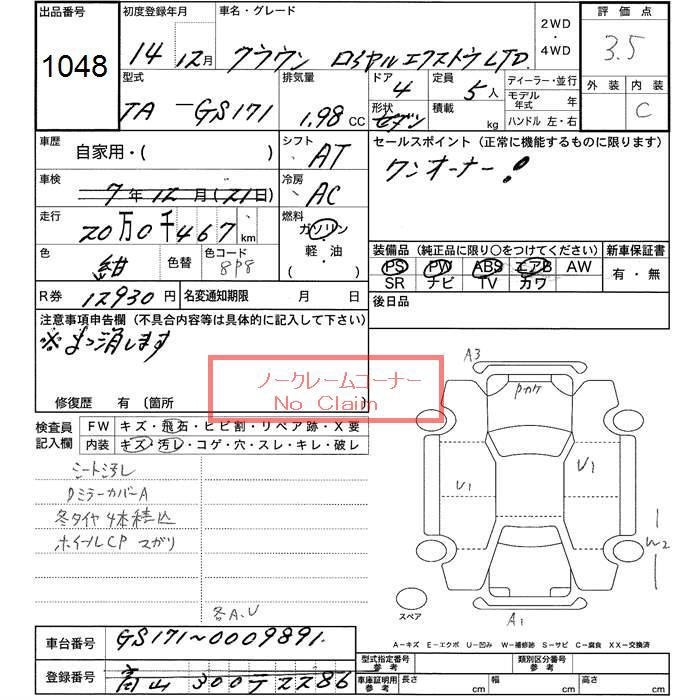 出品番号 初度登録年月 車名・グレード 2WD・4WD 評価点
1048 14年12月 クラウン ロイヤルエクストラLTD. 3.5
型式 排気量 ドア 定員 ディーラー・並行 外装 内装
TA-GS171 1.98CC 4 5人 モデル年式 年 C
形状 セダン 積載 kg ハンドル 左・右
車歴 自家用・( ) シフト AT セールスポイント (正常に機能するものに限ります)
車検 7年12月(21日) 冷房 AC ワンオーナー!
走行 20万0千467km 燃料 ガソリン・軽・油・( )
色 紺 色替 色コード 8P8
装備品 (純正品に限り○をつけてください) 新車保証書
PS PW ABS エアB AW 有・無
SR ナビ TV カワ
R券 12930円 名変通知期限 月 日 後日品
注意事項申告欄 (不具合内容等は具体的に記入して下さい)
※まっ消します
ノークレームコーナー
No Claim
修復歴 有 (箇所 )
検査員記入欄 FW キズ・飛石・ヒビ割・リペア跡・X要
内装 キズ・汚レ・コゲ・穴・スレ・キレ・破レ
シート汚レ
DミラーカバーA
冬タイヤ4本積込
ホイールCP マガリ
各A.U
A3
Pカケ
U1
U1
W2
スペア
A1
A-キズ E-エクボ U-凹み W-補修跡 S-サビ C-腐食 XX-交換済
車台番号 GS171~0009891.
登録番号 富山300テ2286
型式指定番号 参考 類別区分番号 参考
車庫証明用 参考 長さ cm 幅 cm 高さ cm